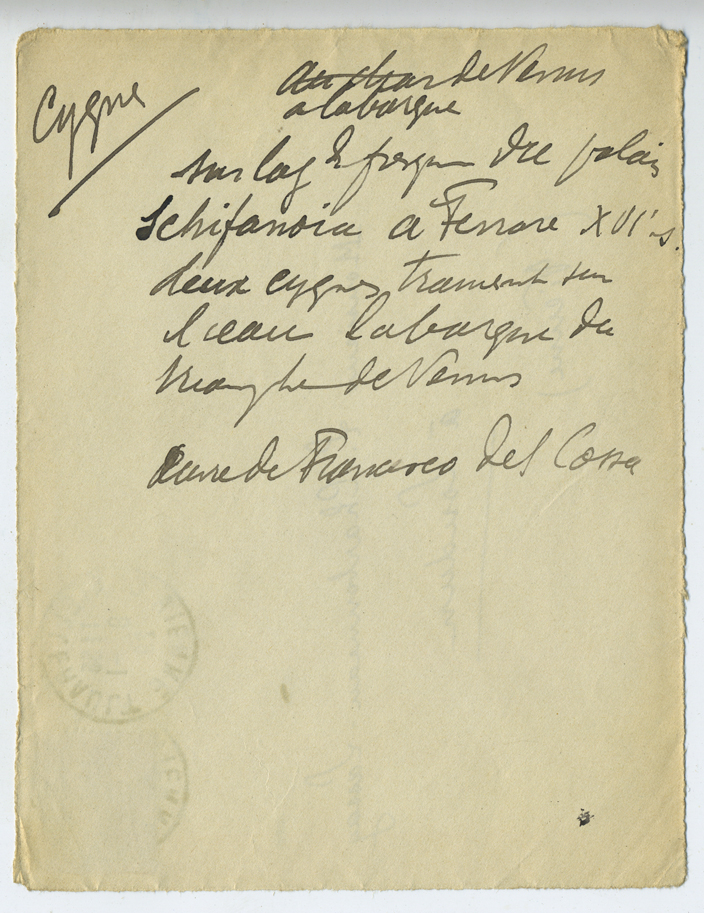 Cygne
au char de Venus
a la barque
sur la g de fresque du palais
Schifanoia a Ferrare XVIe s.
deux cygnes trainent sur
l'eau la barque du
triomphe de Venus
œuvre de Francesco del Cossa